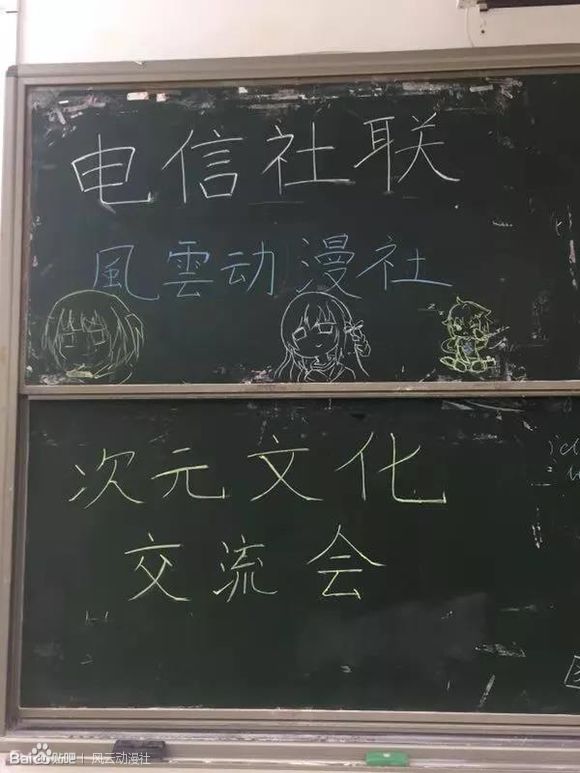 电信社联
風雲动漫社
次元文化
交流会
Bai贴吧 | 风云动漫社